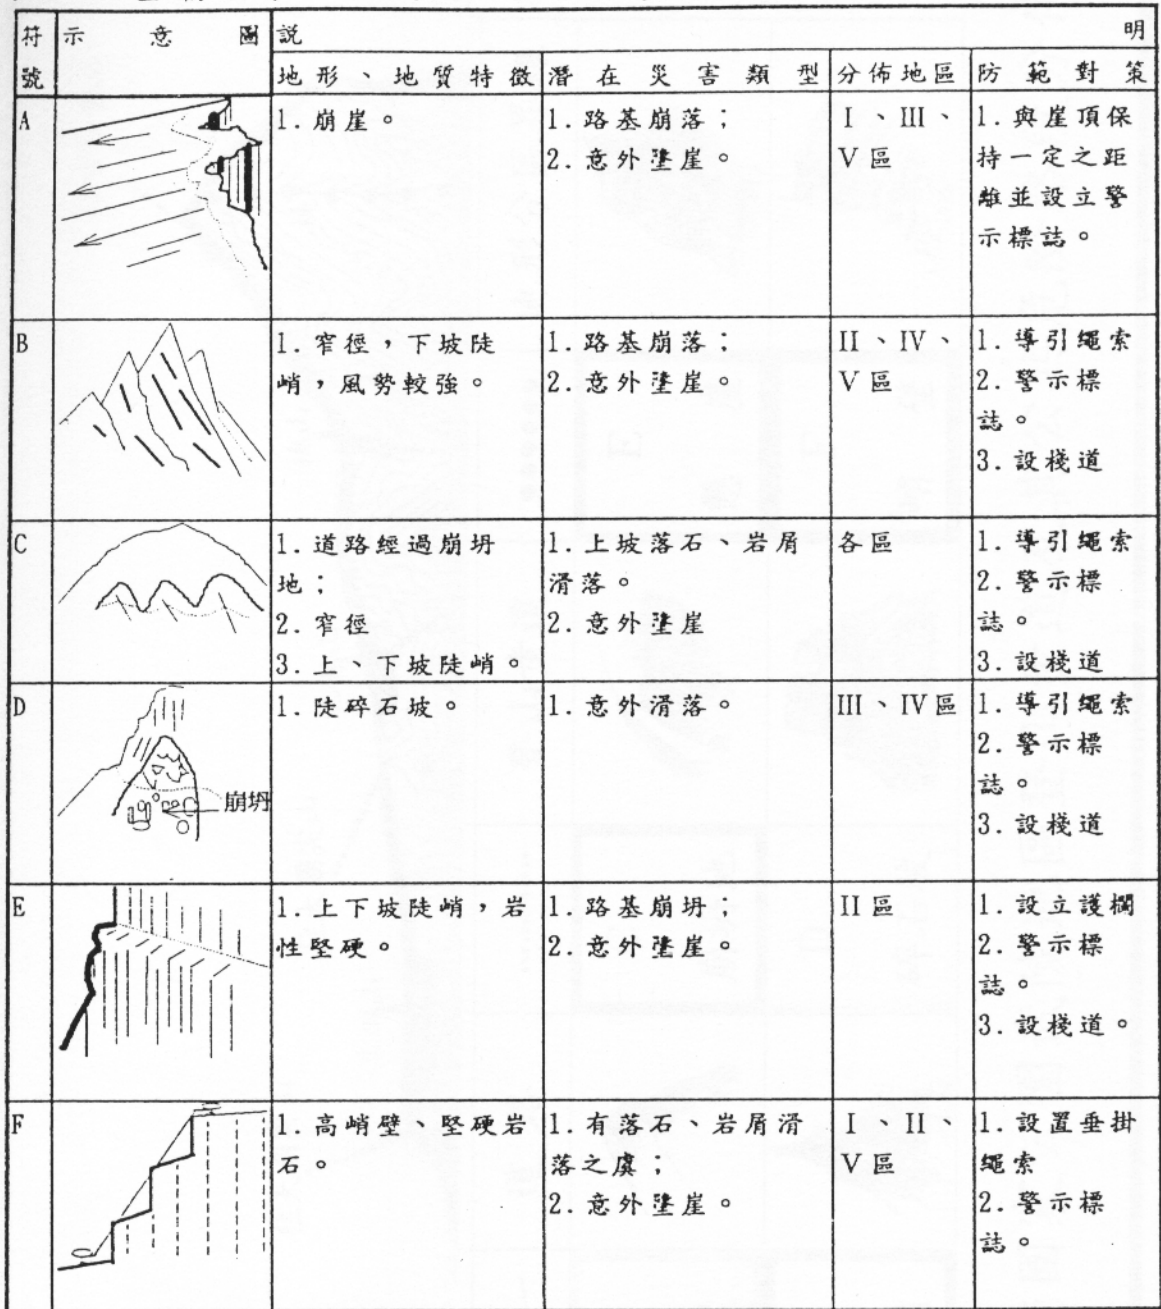 符號 示意圖 説明
地形、地質特徵 潛在災害類型 分佈地區 防範對策
A
1.崩崖。
1.路基崩落；
2.意外墬崖。
I、III、
V區
1.與崖頂保
持一定之距
離並設立警
示標誌。
B
1.窄徑，下坡陡
峭，風勢較強。
1.路基崩落；
2.意外墬崖。
II、IV、
V區
1.導引繩索
2.警示標
誌。
3.設棧道
C
1.道路經過崩坍
地；
2.窄徑
3.上、下坡陡峭。
1.上坡落石、岩屑
滑落。
2.意外墬崖
各區
1.導引繩索
2.警示標
誌。
3.設棧道
D
崩坍
1.陡碎石坡。
1.意外滑落。
III、IV區
1.導引繩索
2.警示標
誌。
3.設棧道
E
1.上下坡陡峭，岩
性堅硬。
1.路基崩坍；
2.意外墬崖。
II區
1.設立護欄
2.警示標
誌。
3.設棧道。
F
1.高峭壁、堅硬岩
石。
1.有落石、岩屑滑
落之虞；
2.意外墬崖。
I、II、
V區
1.設置垂掛
繩索
2.警示標
誌。